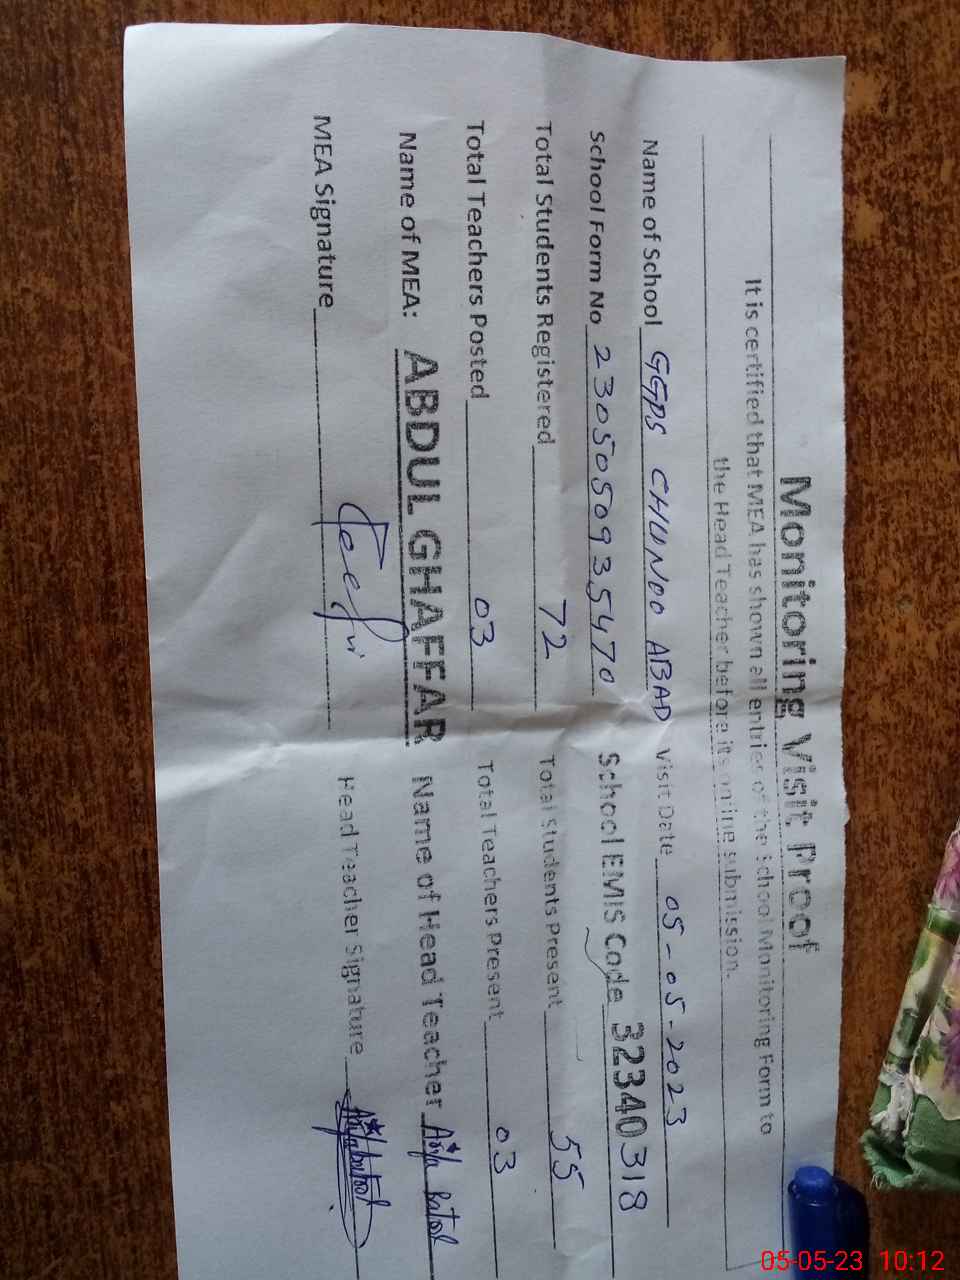 Monitoring Visit Proof
It is certified that MEA has shown all entries of the School Monitoring Form to
the Head Teacher before its online submission.
Name of School GGPS CHUNOO ABAD Visit Date 05-05-2023
School Form No 23050509354 70 School EMIS Code 32340318
Total Students Registered 72 Total Students Present 55
Total Teachers Posted 03 Total Teachers Present 03
Name of MEA: ABDUL GHAFFAR Name of Head Teacher Asiya Batool
MEA Signature Head Teacher Signature
05-05-23 10:12